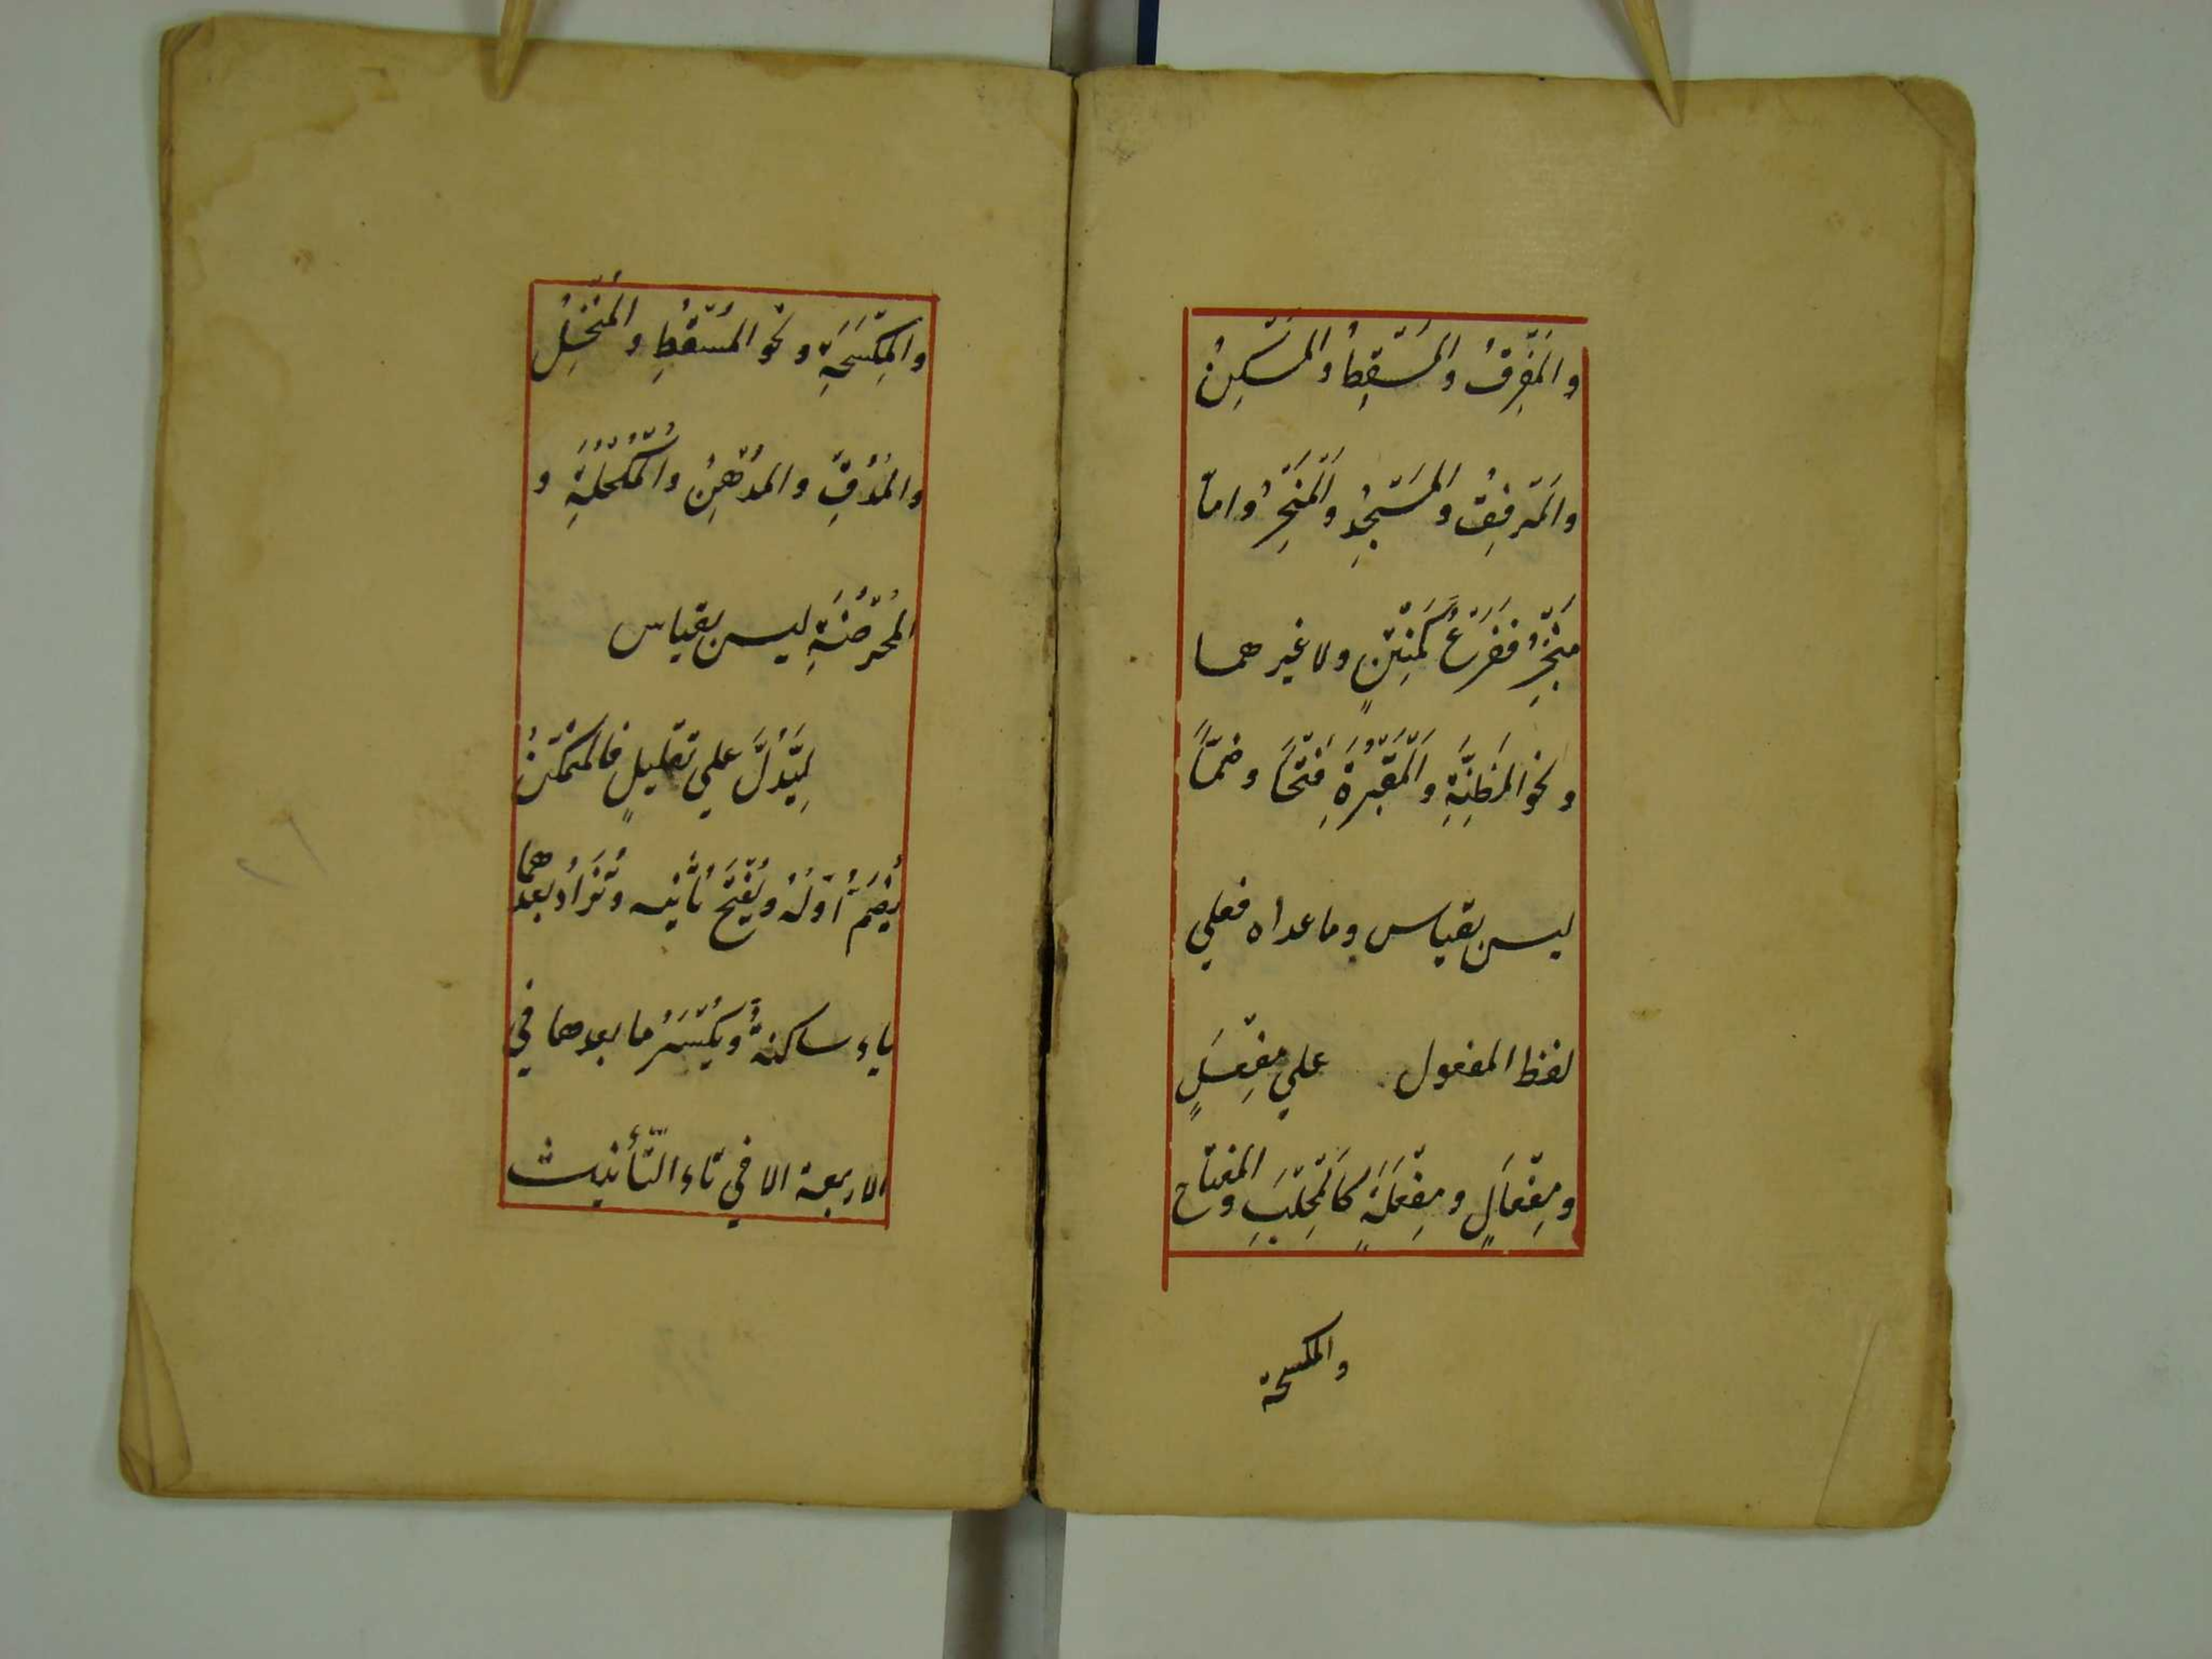 وَالْمَفْرِقُ وَالْمَسْقِطُ وَالْمَسْكِنُ
وَالْمَرْفِقُ وَالْمَسْجِدُ وَالْمَنْخِرُ وَامّا
مِنْخِرٌ فَفَرْعٌ كَمِنْتِنٍ ولا غيرهما
ونحو المَظِنَّةِ وَالْمَقْبُرَةِ فَتْحًا وضمًّا
ليس بقياس وما عداه فعلي
لفظ المفعول علي مِفْعَلٍ
ومِفْعَالٍ ومِفْعَلَةٍ كَالْمِحْلَبِ والمفتاح
والمكسحة
والْمِكْسَحَةِ ونحو المُسْعُطِ والْمُنْخُلِ
والْمُدُقِّ والْمُدْهُنِ والْمُكْحُلَةِ و
المُحْرُضَةِ ليس بقياس
لِيَدُلَّ علي تقليلٍ فالمتمكّنُ
يُضَمُّ أوّلُهُ ويُفْتَحُ ثَانيه وتُزَادُ بعدهما
ياء ساكنةٌ ويُكْسَرُ ما بعدها في
الاربعة الا في تاء التَّأنيث